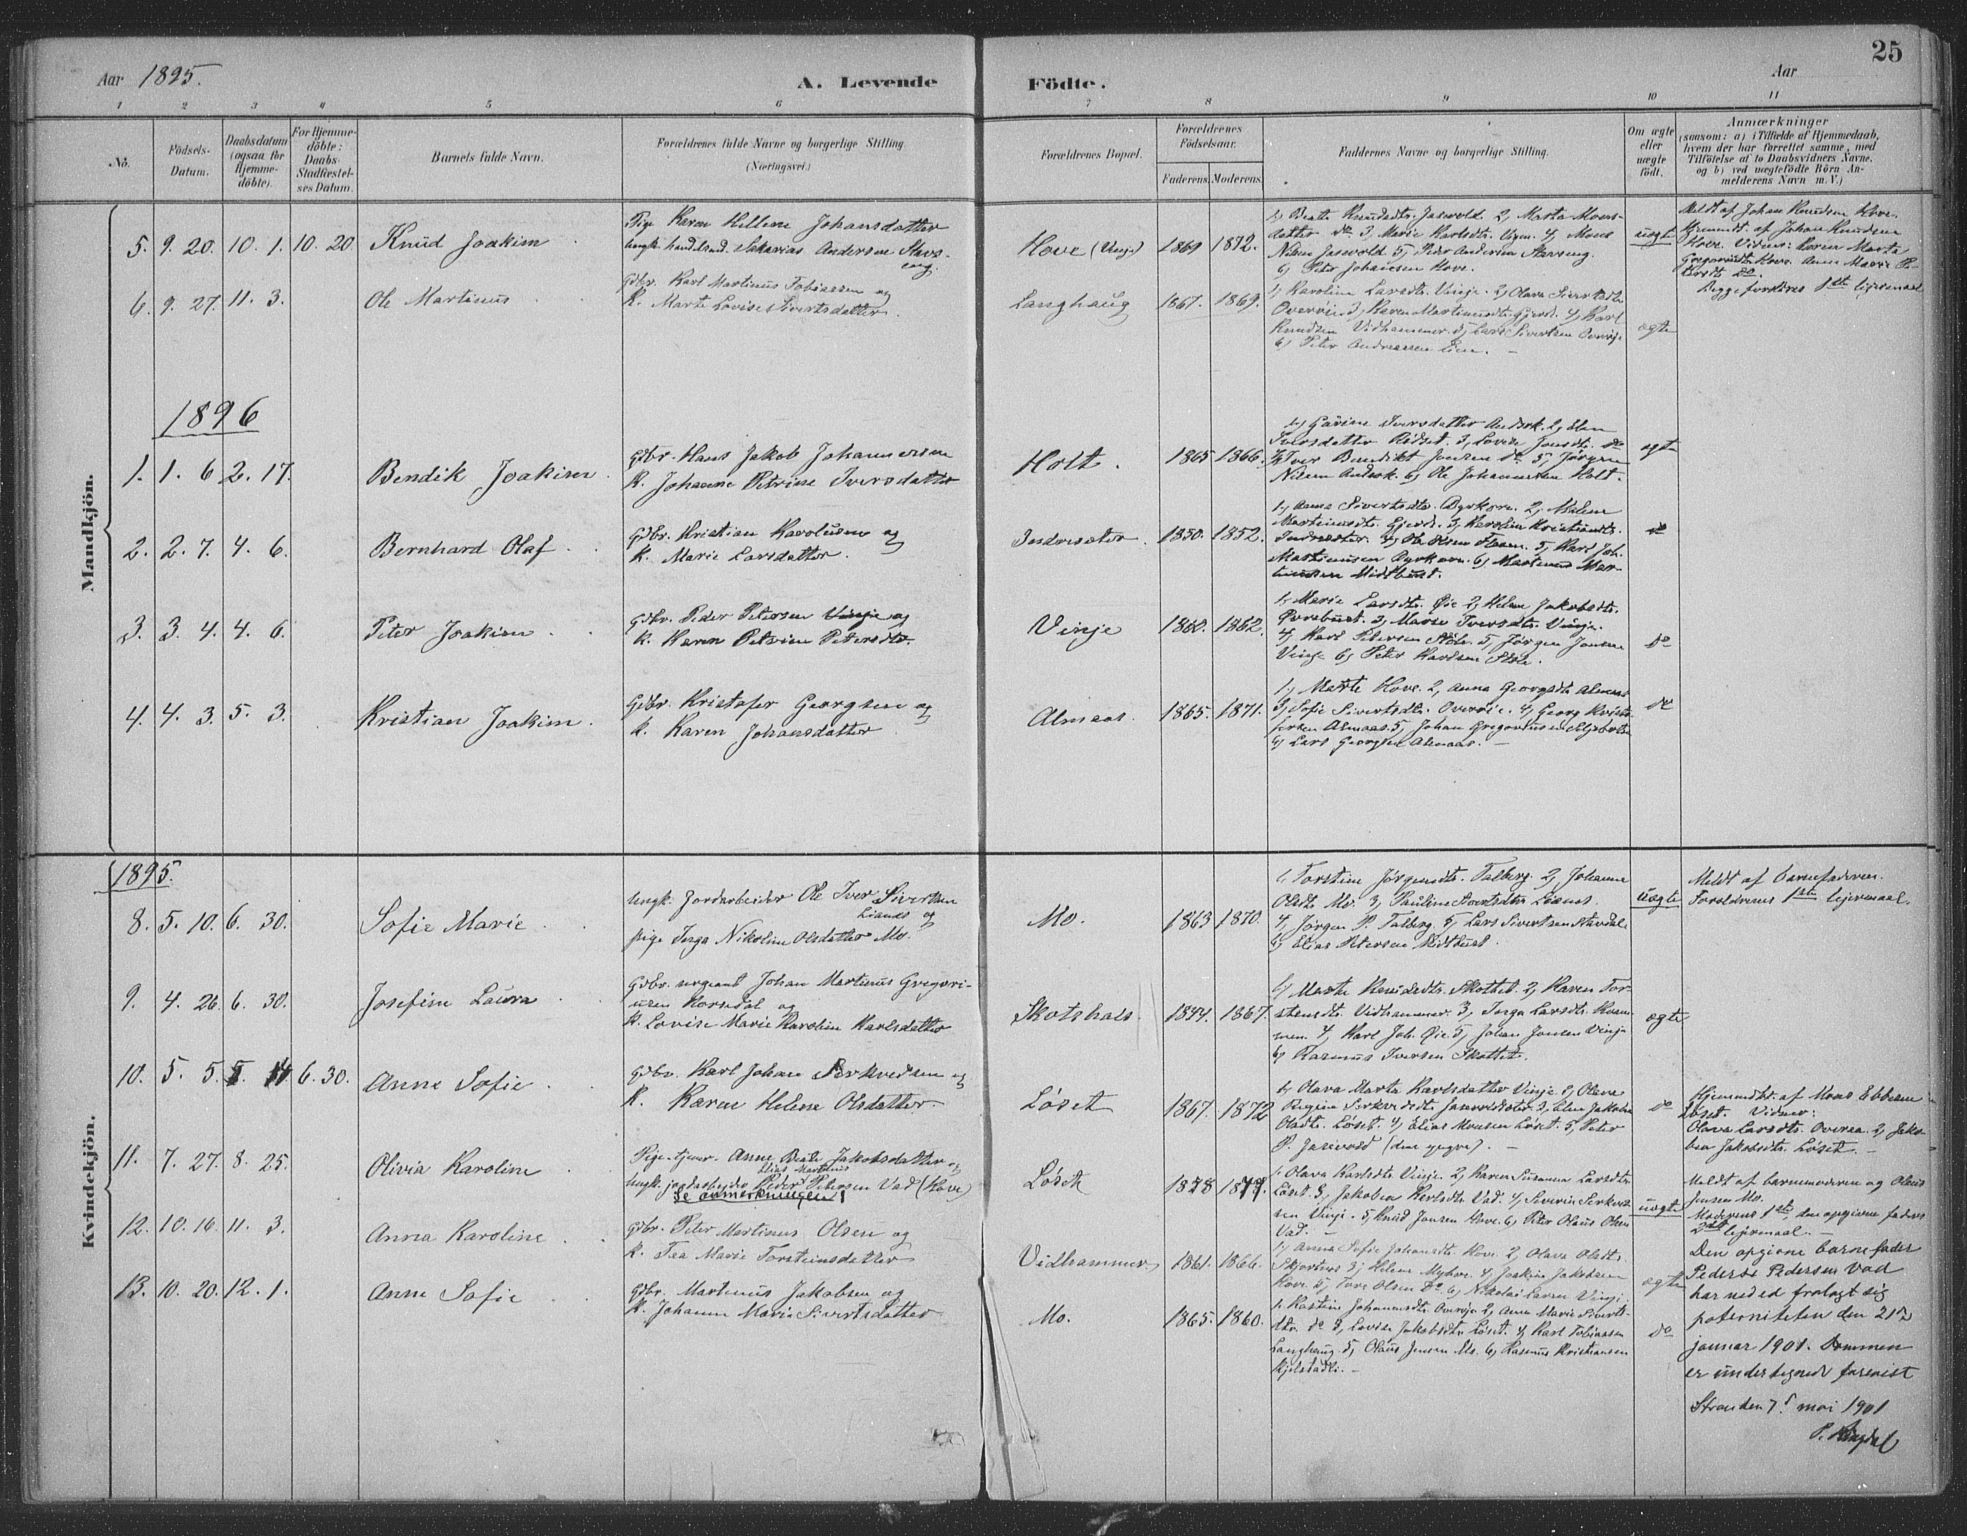 25
Aar 1895.
A. Levende
Födte.
Aar
1 2 3 4 5 6 7 8 9 10 11
No.
Födsels-
Datum.
Daabsdatum
(ogsaa for
Hjemme-
döbte).
For Hjemme-
döbte:
Daabs-
Stadfæstel-
ses Datum.
Barnets fulde Navn.
Forældrenes fulde Navne og borgerlige Stilling.
(Næringsvei.)
Forældrenes Bopæl.
Forældrenes
Födselsaar.
Faderens. Moderens.
Faddernes Navne og borgerlige Stilling.
Om ægte
eller
uægte
födt.
Anmærkninger
(saasom: a) i Tilfælde af Hjemmedaab,
hvem der har forrettet samme, med
Tilföielse af to Daabsvidners Navne,
og b) ved uægtefödte Börn An-
melderens Navn m. V.)
Mandkjön.
5. 9. 20. 10. 1. 10. 20 Knud Joakim
Pige Karen Helene Johansdatter
ungk. Sakarias Andersen Stavs-
eng.
Hove (Vinje) 1869 1872.
1, Beate Knudsdtr. Jasvold 2, Marta Mons-
datter do 3, Marie Karlsdtr. 4, Mons
Nilsen Jasvold 5, Peder Andersen Stavseng
6, Peter Johansen Hove.
uægte
Meldt af Johan Knudsen Hove.
Hjemmdt. af Johan Knudsen
Hove. Vidner: Karen Marta
Gregoriusdtr. Hove. Anne Marie Pe-
tersdt do.
Begge forældres 1ste lejermaal
6. 9. 27. 11. 3. Ole Martinus
Gdbr. Karl Martinus Tobiassen og
K. Marte Lovise Sivertsdatter.
Langhaug 1867. 1869.
1, Karoline Larsdtr. Vinje. 2, Olava Sivertsdtr.
Overøie 3, Karen Martinusdtr. Gjerde 4, Karl
Knudsen Vidhammer. 5, Lars Sivertsen Overøje
6, Peter Andreassen Lien.
ægte
1896
1. 1. 6 2. 17. Bendik Joakim
Gdbr. Hans Jakob Johannessen
K. Johanne Petrine Iversdatter
Holt. 1865 1866.
1, Gurine Iversdatter 2, Elen
Iversdatter Ridset. 3, Lovise Jonsdtr. do
4, Iver Bendikt Jonsen do 5, Jørgen
Nilsen 6, Ole Johannessen Holt.
ægte
2. 2. 7. 4. 6. Bernhard Olaf
Gdbr. Kristian Karolusen og
K. Marie Larsdatter.
Indresæter. 1850. 1852.
1, Anna Sivertsdtr. Dyrkorn. 2, Malene
Martinusdtr. Gjerde. 3, Karoline Kristiansdtr.
Indresæter. 4, Ole Olsen Flaam. 5, Karl Joh.
Martinussen Dyrkorn. 6, Martinus Mar-
tinussen Midtbust.
do
3. 3. 4. 4. 6. Peter Joakim
Gdbr. Peder Petersen Vinje og
K. Karen Petrine Petersdtr.
Vinje 1860. 1862.
1, Marie Larsdtr. Øie 2, Helene Jakobsdtr.
Øvrebust. 3, Marie Iversdtr. Vinje.
4, Karl Petersen Støle. 5, Jørgen Jonsen
Vinje 6, Peter Karlsen Støle.
do
4. 4. 3. 5. 3. Kristian Joakim
Gdbr. Kristofer Georgsen og
K. Karen Johansdatter
Almaas. 1865. 1871.
1, Marte Hove. 2, Anna Georgsdtr. Almaas
3, Sofie Sivertsdtr. Overøie. 4, Georg Kristo-
fersen Almaas. 5, Johan Gregoriussen
6, Lars Georgsen Almaas.
do
Kvindekjön.
1895.
8. 5. 10. 6. 30. Sofie Marie
Ungk. Jordarbeider Ole Iver Sivertsen
Lianes og
pige Inga Nikoline Olsdatter Mo.
Mo. 1863 1870.
1, Torstine Jørgensdtr. Talberg. 2, Johanne
Olsdtr. Mo. 3, Pauline Sivertsdtr. Lianes.
4, Jørgen P. Talberg. 5, Lars Sivertsen Stavdal.
6, Elias Petersen Midtbust.
uægte
Meldt af barnefaderen.
Forældrenes 1ste lejermaal.
9. 4. 26. 6. 30. Josefine Laura
Gdbr. sergeant Johan Martinus Gregori-
usen Korsedal og
K. Lovise Marie Karoline Karlsdatter
Skotshals. 1844. 1867.
1, Marte Knudsdtr. Skottet. 2, Karen Tor-
stensdtr. Vidhammer. 3, Inga Larsdtr. Ham-
men. 4, Karl Joh. Øie. 5, Johan Jonsen Vinje
6, Rasmus Iversen Skottet.
ægte
10. 5. 5. 5. 14 6. 30. Anne Sofie
Gdbr. Karl Johan Serkvedsen og
K. Karen Helene Olsdatter.
Løset 1867. 1872
1, Olava Marta Karlsdatter Vinje 2, Oleve
Regine Serkvedsdtr. 3, Elen Jakobea
Olsdtr. Løset. 4, Elias Monsen Løset. 5, Peter
P. Jasvold (den yngre).
do
Hjemmdbt. af Mons Ebbesen
Løset. Vidner:
Olava Larsdtr. Overaa. 2, Jako-
bea Jakobsdtr. Løset.
11. 7. 27. 8. 25. Olivia Karoline
Pige tjener. Anne Beate Jakobsdatter og
Elias Martinus
ungk. jordarbejder Peder Petersen Vad (Hove)
Se anmerkningen!
Løset 1878 1877.
1, Olava Karlsdtr. Vinje. 2, Karen Susanna Larsdtr.
Løset. 3, Jakobea Karlsdtr. Vad. 4, Severin Serkved-
sen Vinje. 5, Knud Jonsen Hove. 6, Peter Olaus Olsen
Vad.
uægte
Meldt af barnemoderen og Olaus
Jensen Mo.
Moderens 1ste, den opgivne faders
2det lejermaal.
Den opgivne barnefader
Peder Pedersen Vad
har ned ed fralagt sig
paterniteten den 21de
januar 1901. Dommen
er undertegnede forevist
Stranden 7de mai 1901
12. 10. 16. 11. 3. Anna Karoline
Gdbr. Peter Martinus Olsen og
K. Tea Marie Torsteinsdatter
Vidhammer 1861. 1866.
1, Anna Sofie Johansdtr. Hove. 2, Olava Olsdtr.
3, Helene Myhre. 4, Joakim Jakobsen
Hove. 5, Tore Olsen do. 6, Nikolai Larsen Vinje.
ægte
13. 10. 20. 12. 1. Anne Sofie
Gdbr. Martinus Jakobsen og
K. Johanne Marie Sivertsdatter
Mo. 1865. 1860.
1, Kastine Johannesdtr. Overøje 2, Anne Marie Sivertsdtr.
do 3, Lovise Jakobsdtr. Løset. 4, Karl Tobiassen
Langhaug. 5, Olaus Jensen Mo. 6, Rasmus Kristiansen
Kjelstadli.
do